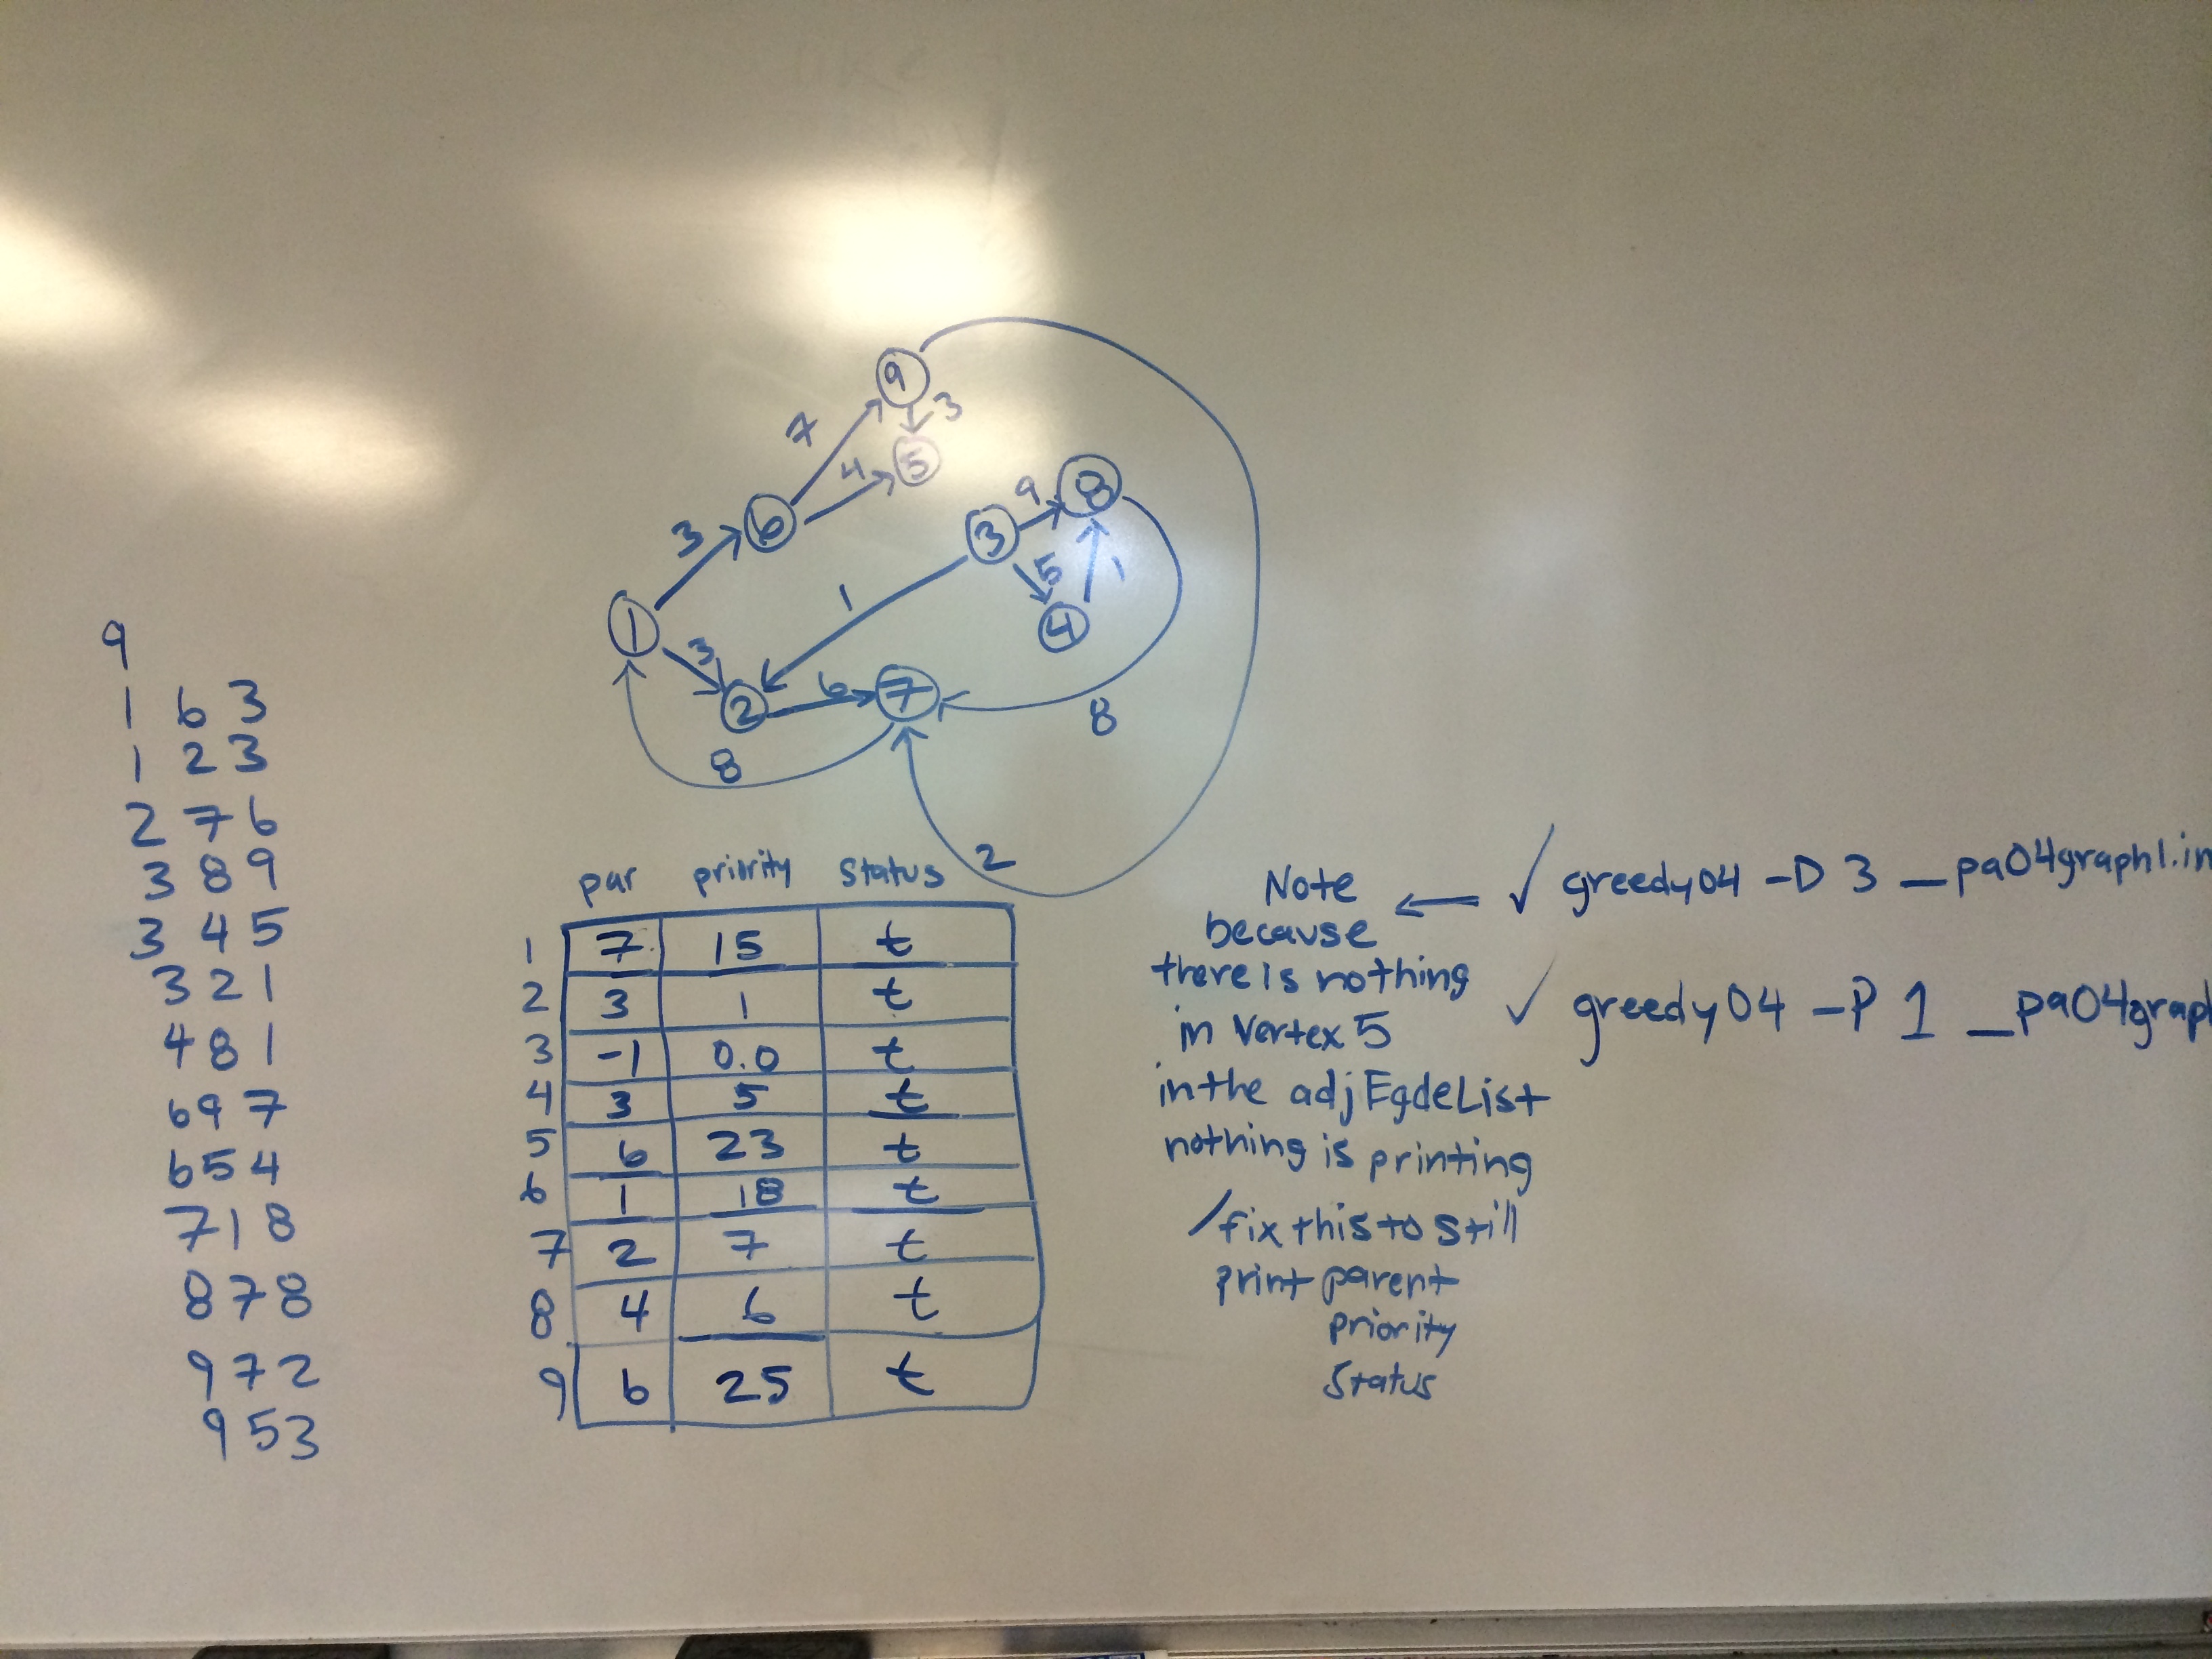 9
1 6 3
1 2 3
2 7 6
3 8 9
3 4 5
3 2 1
4 8 1
6 9 7
6 5 4
7 1 8
8 7 8
9 7 2
9 5 3
9
3
7
5
4
8
9
6
3
3
5
1
1
1
4
3
2
6
7
8
8
2
par priority status
1 7 15 t
2 3 1 t
3 -1 0.0 t
4 3 5 t
5 6 23 t
6 1 18 t
7 2 7 t
8 4 6 t
9 6 25 t
Note ← ✓ greedy04 -D 3 _pa04graph1.in
because
there is nothing
in Vertex 5
in the adjEgdeList
nothing is printing
/fix this to still
print parent
priority
status
✓ greedy04 -P 1 _pa04grap